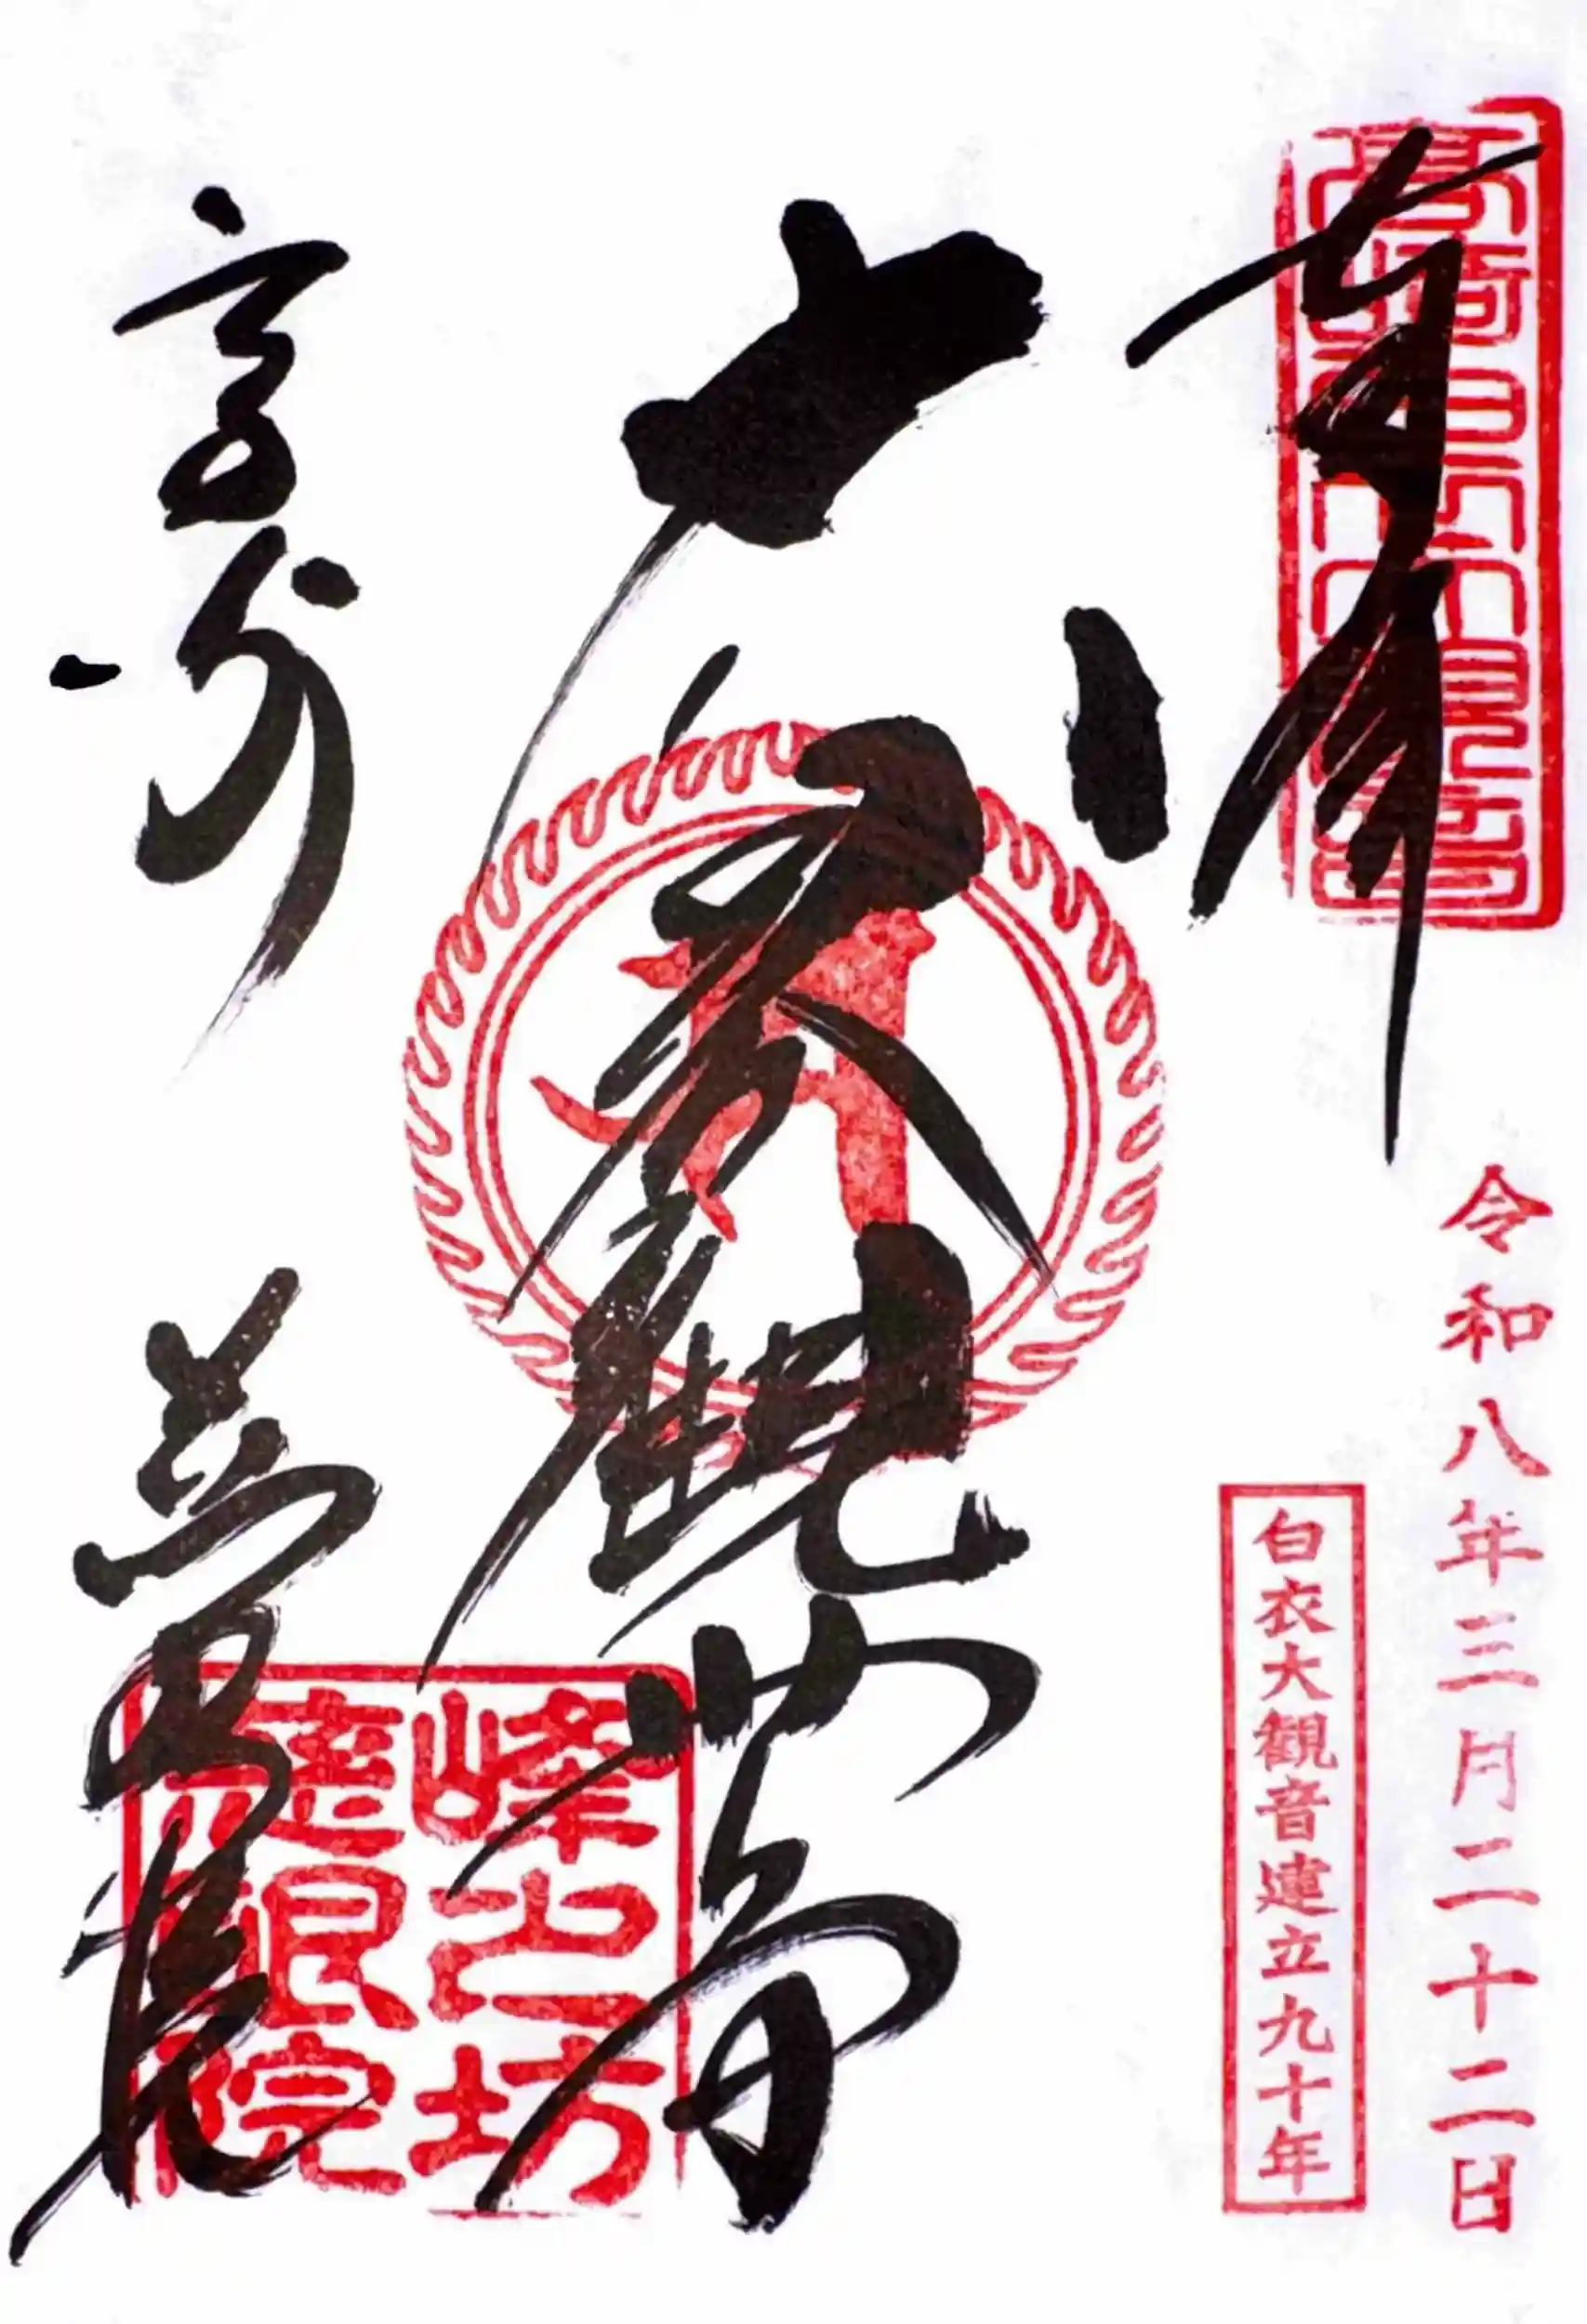 奉拝
令和八年三月二十二日
白衣大観音建立九十年
白衣觀世音
峰之坊
慈眼院
高崎
慈眼院